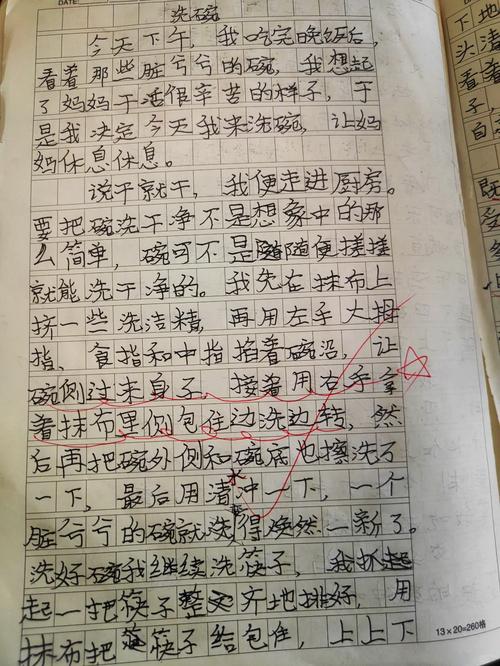 DATE
洗碗
今天下午，我吃完晚饭后，
看着那些脏兮兮的碗，我想起
了妈妈干活很辛苦的样子，于
是我决定今天我来洗碗，让妈
妈休息休息。
说干就干，我便走进厨房。
要把碗洗干净不是想象中的那
么简单，碗可不是随随便搓搓
就能洗干净的。我先在抹布上
挤一些洗洁精，再用左手大拇
指、食指和中指掐着碗沿，让
碗侧过来身子，接着用右手拿
着抹布里侧包住边洗边转，然
后再把碗外侧和碗底也擦洗了
一下，最后用清水冲一下，一个
脏兮兮的碗就洗得焕然一新了。
洗好碗我继续洗筷子，我抓起
起一把筷子整齐地排好，用
抹布把筷子给包住，上上下
13×20=260格
下地
头
看
子
自
既
受